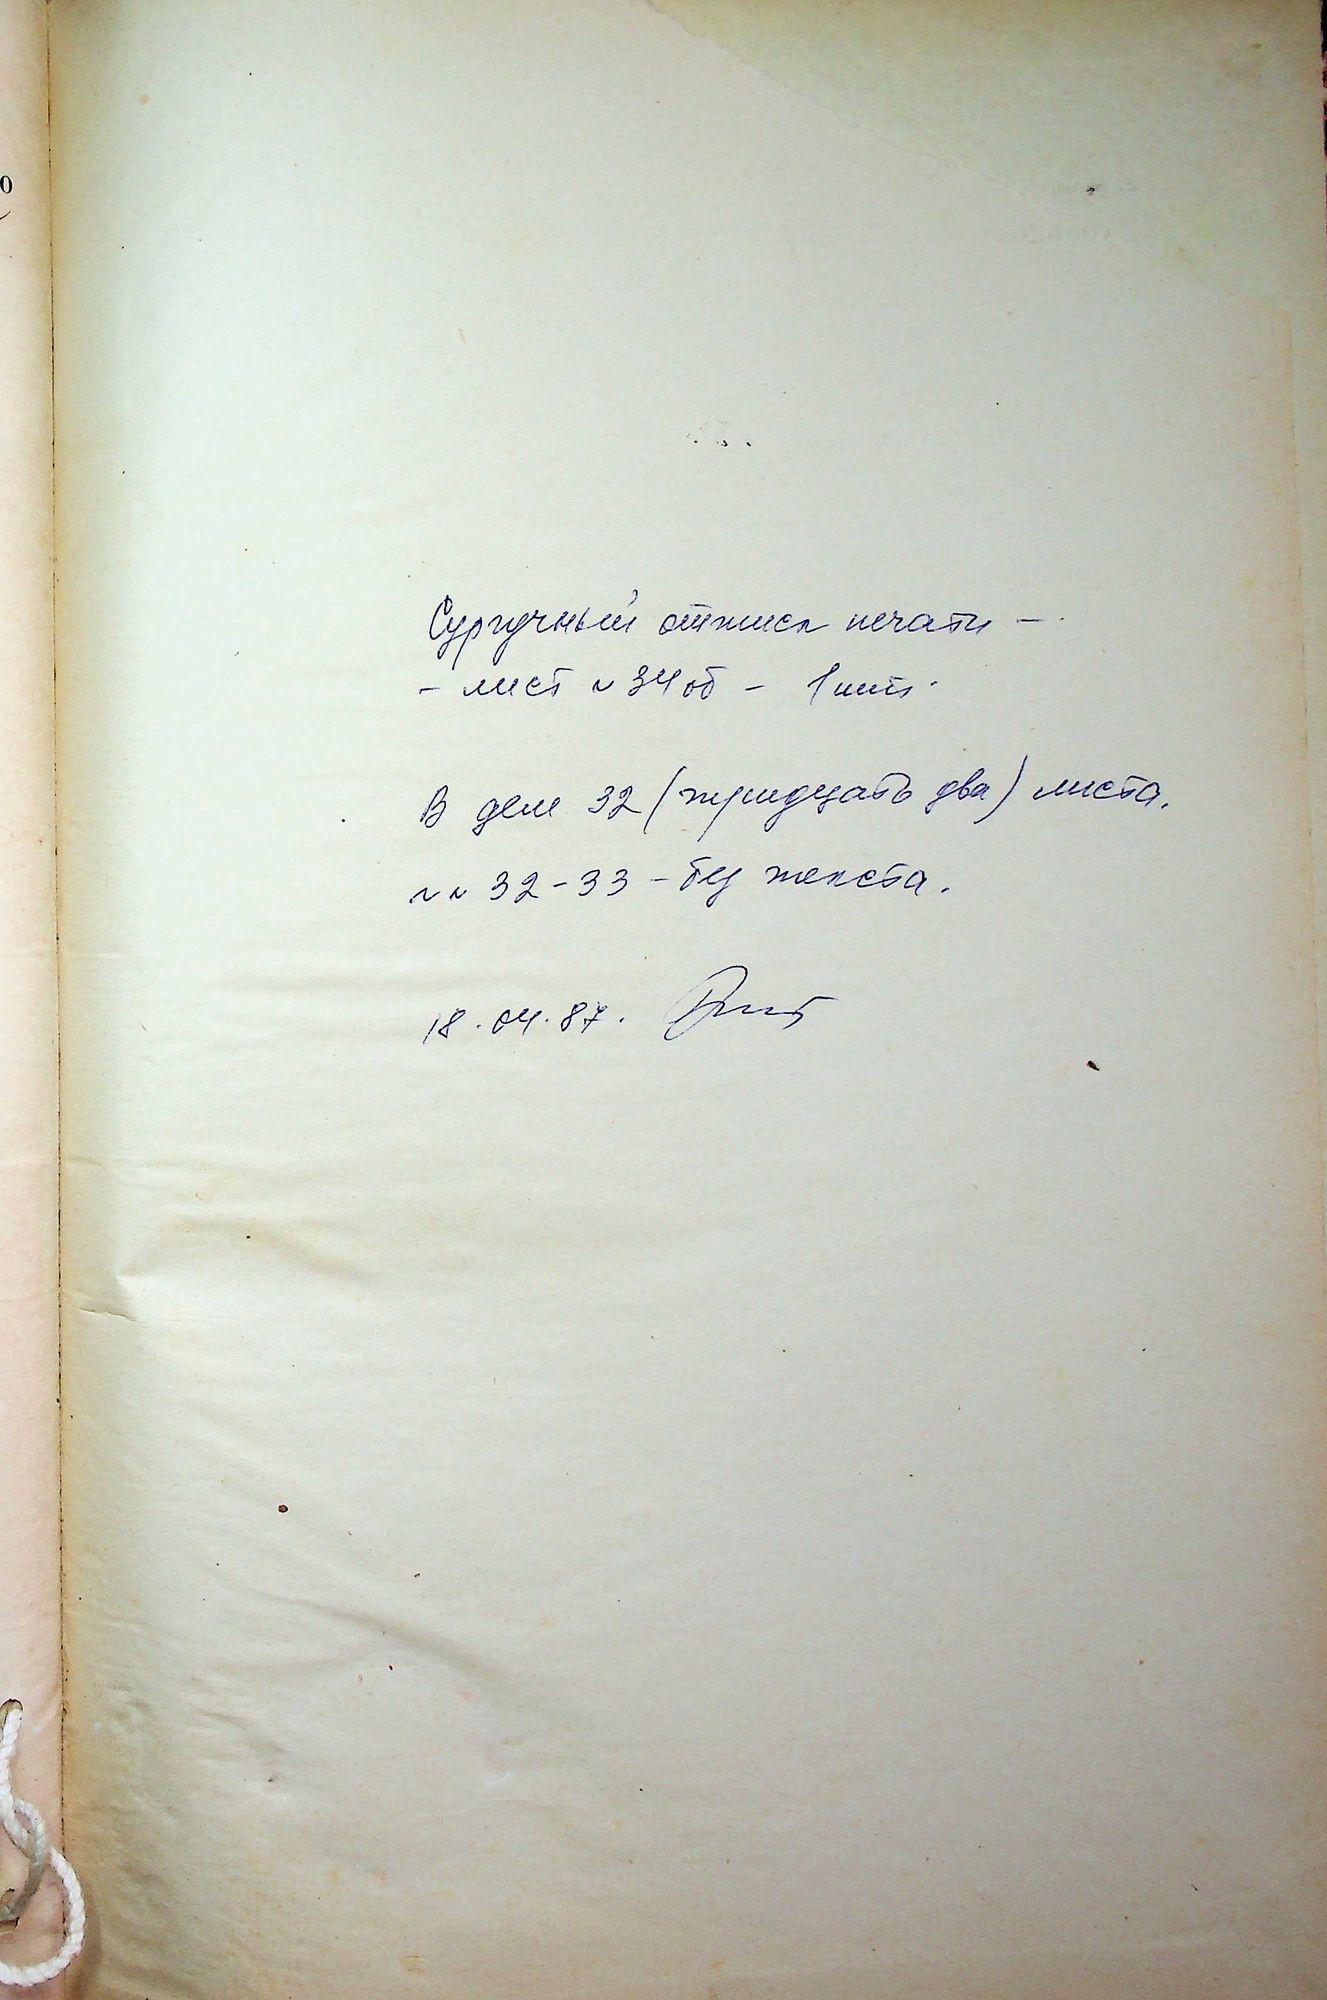 о
Сургучный оттиск печати -
- лист № 34 об - 1 шт.
В деле 32 (тридцать два) листа.
№№ 32-33 - без текста.
18.04.87.